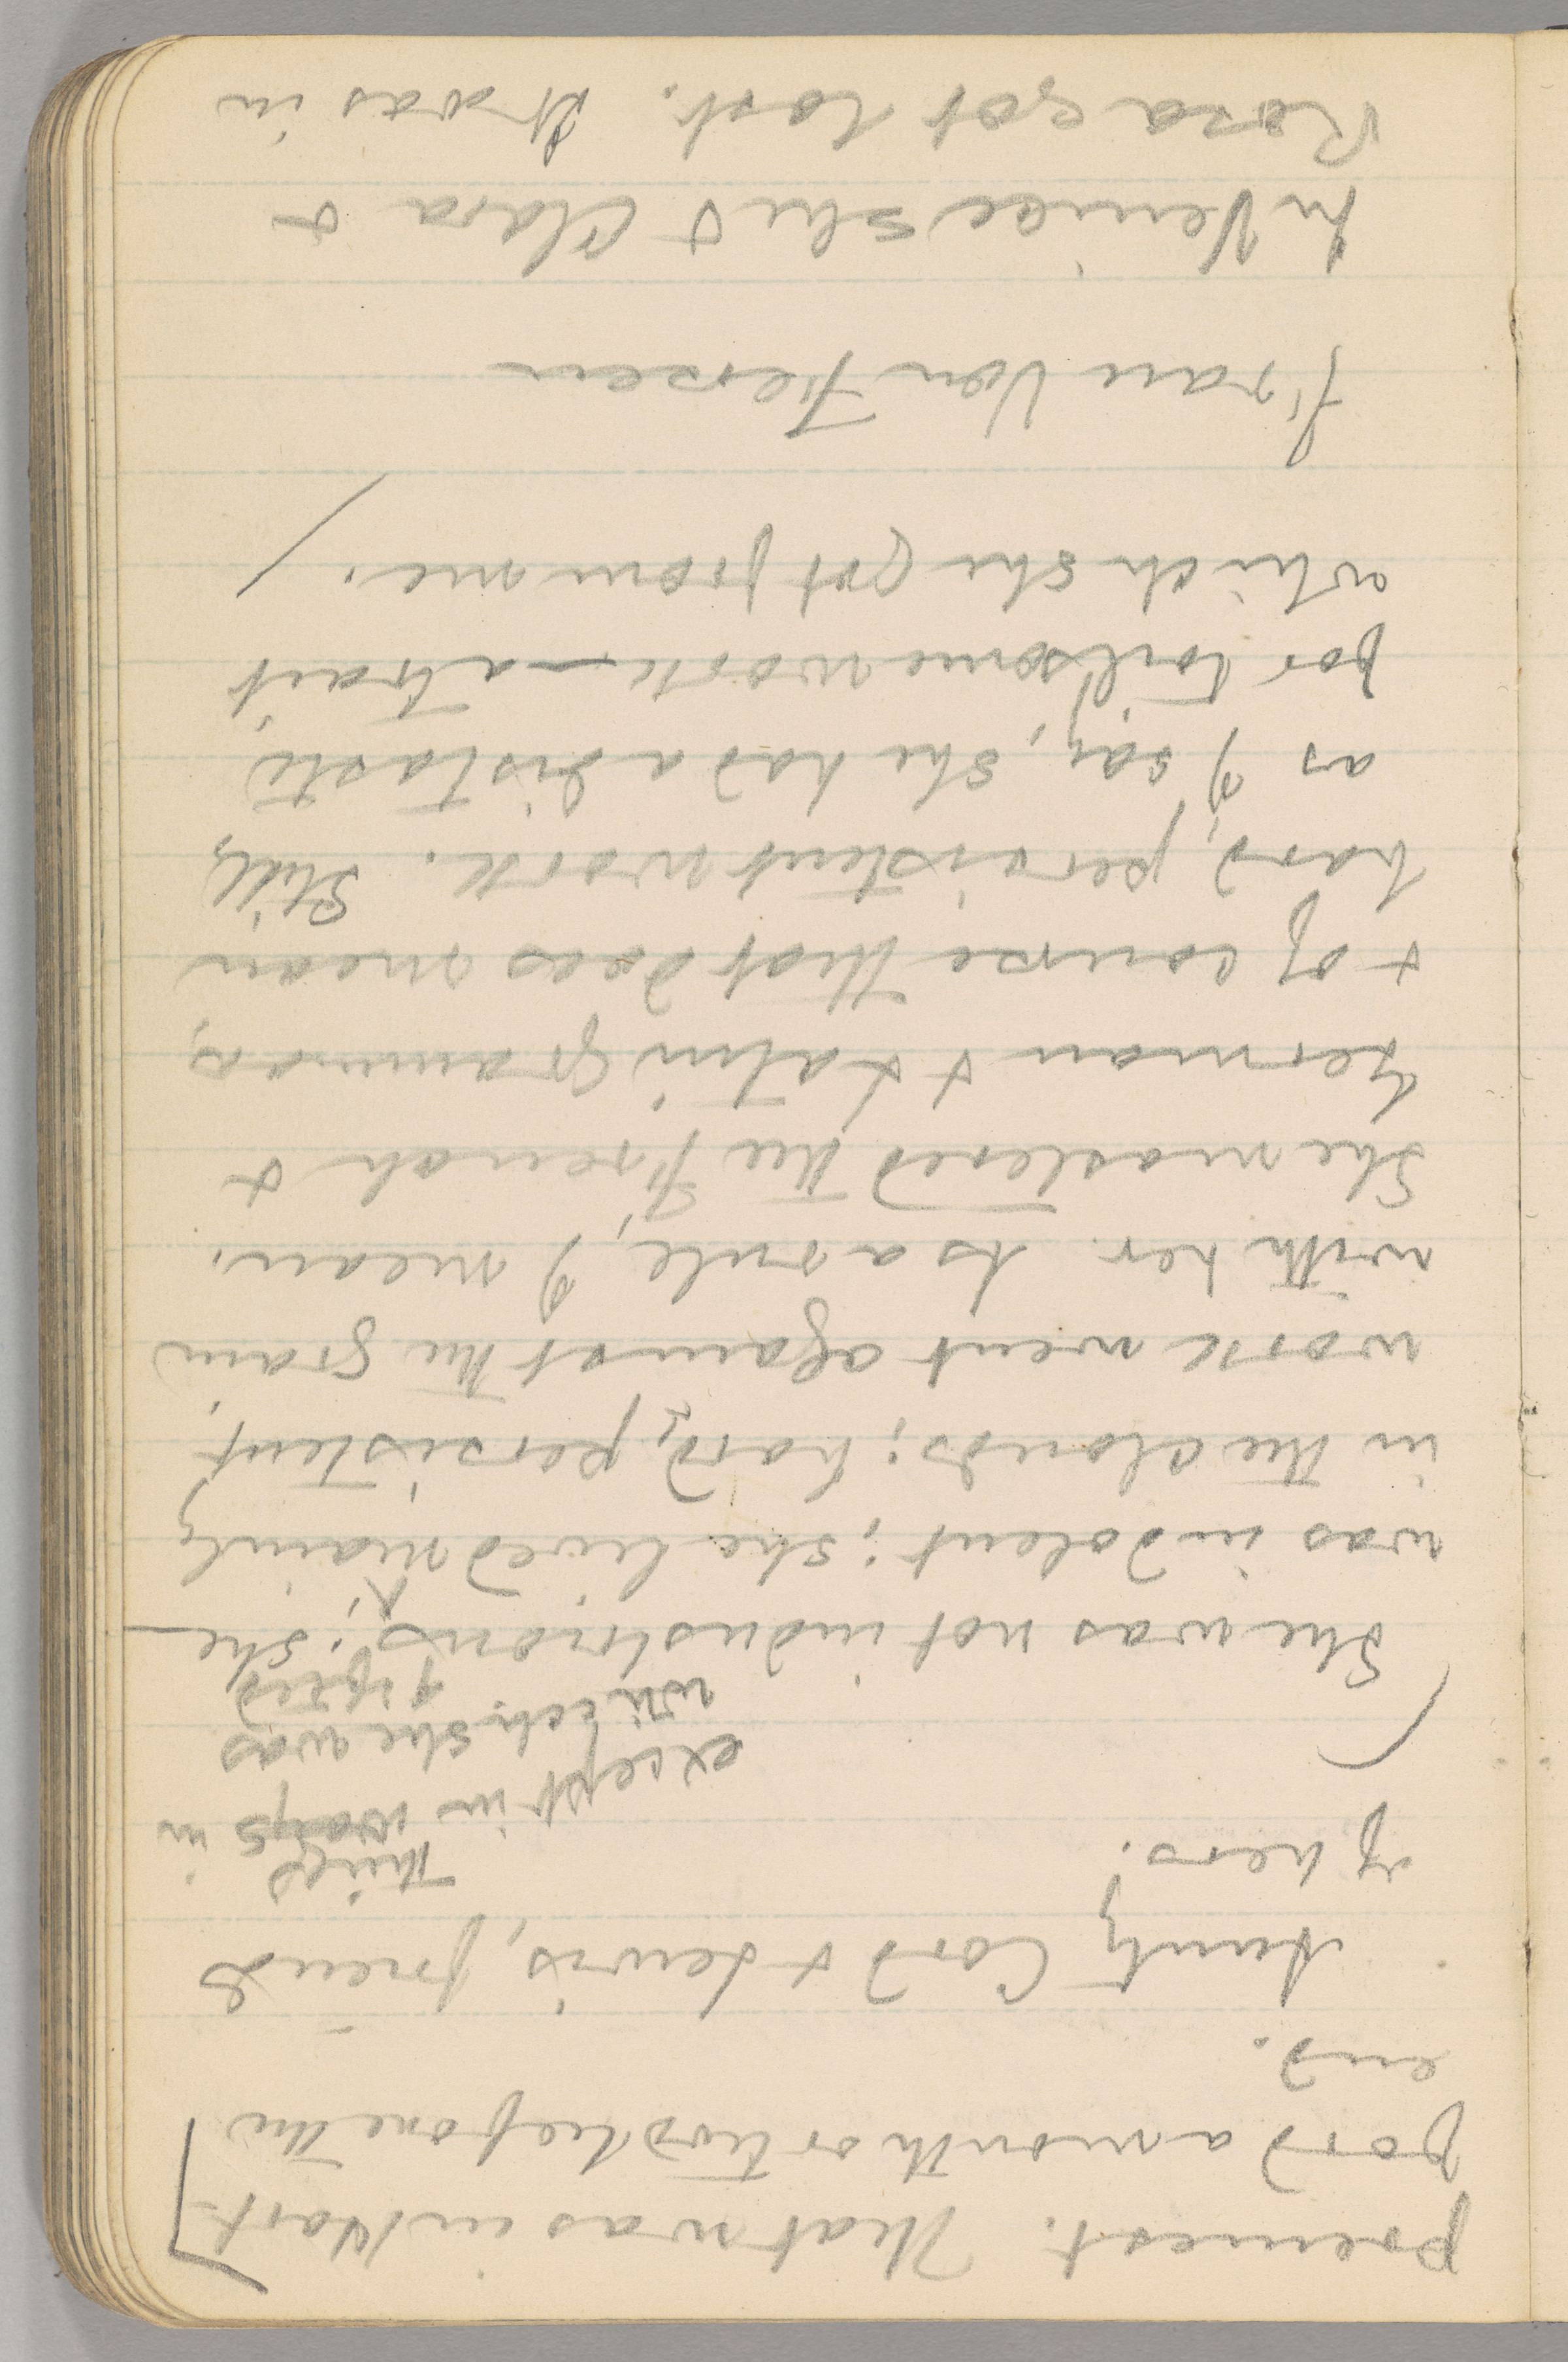 Prenest. That was in Hart-
ford a month or two before the
end.
Aunty Cord & Lewis, friends
of hers.
She was not industrious, except in things
in ways in
which she was
gifted; she
was indolent; she lived mainly
in the clouds; hard, persistent
work went against the grain,
with her. As a rule, I mean.
She mastered the French &
German & Latin grammars,
& of course that does mean
hard, persistent work. Still,
as I say, she had a distaste
for toilsome work—a trait
which she got from me.
Frau Von Fersen
In Venice she & Clara &
Rosa got lost. It was in